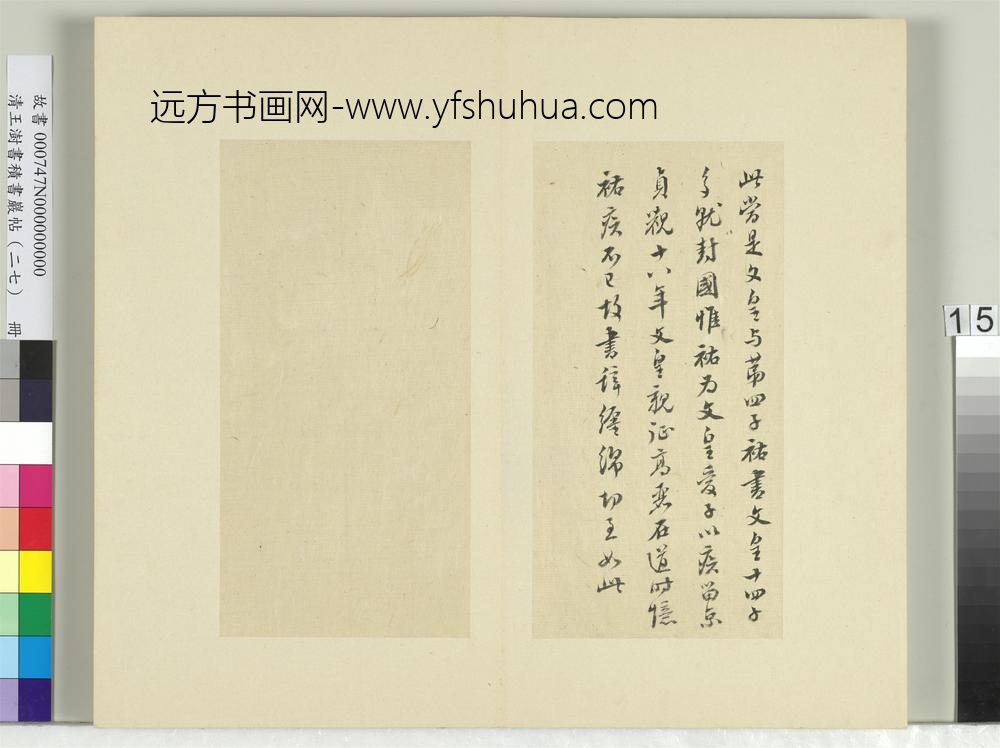 远方书画网-www.yfshuhua.com
故書 000747N000000000
清王澍書積書巖帖（二七） 冊
15
此勞是文皇与苐四子祐書文皇十四子
多就封國惟祐为文皇愛子以疾留京
貞觀十八年文皇親征高麗在道時憶
祐疾不已故書辞纏綿切至如此